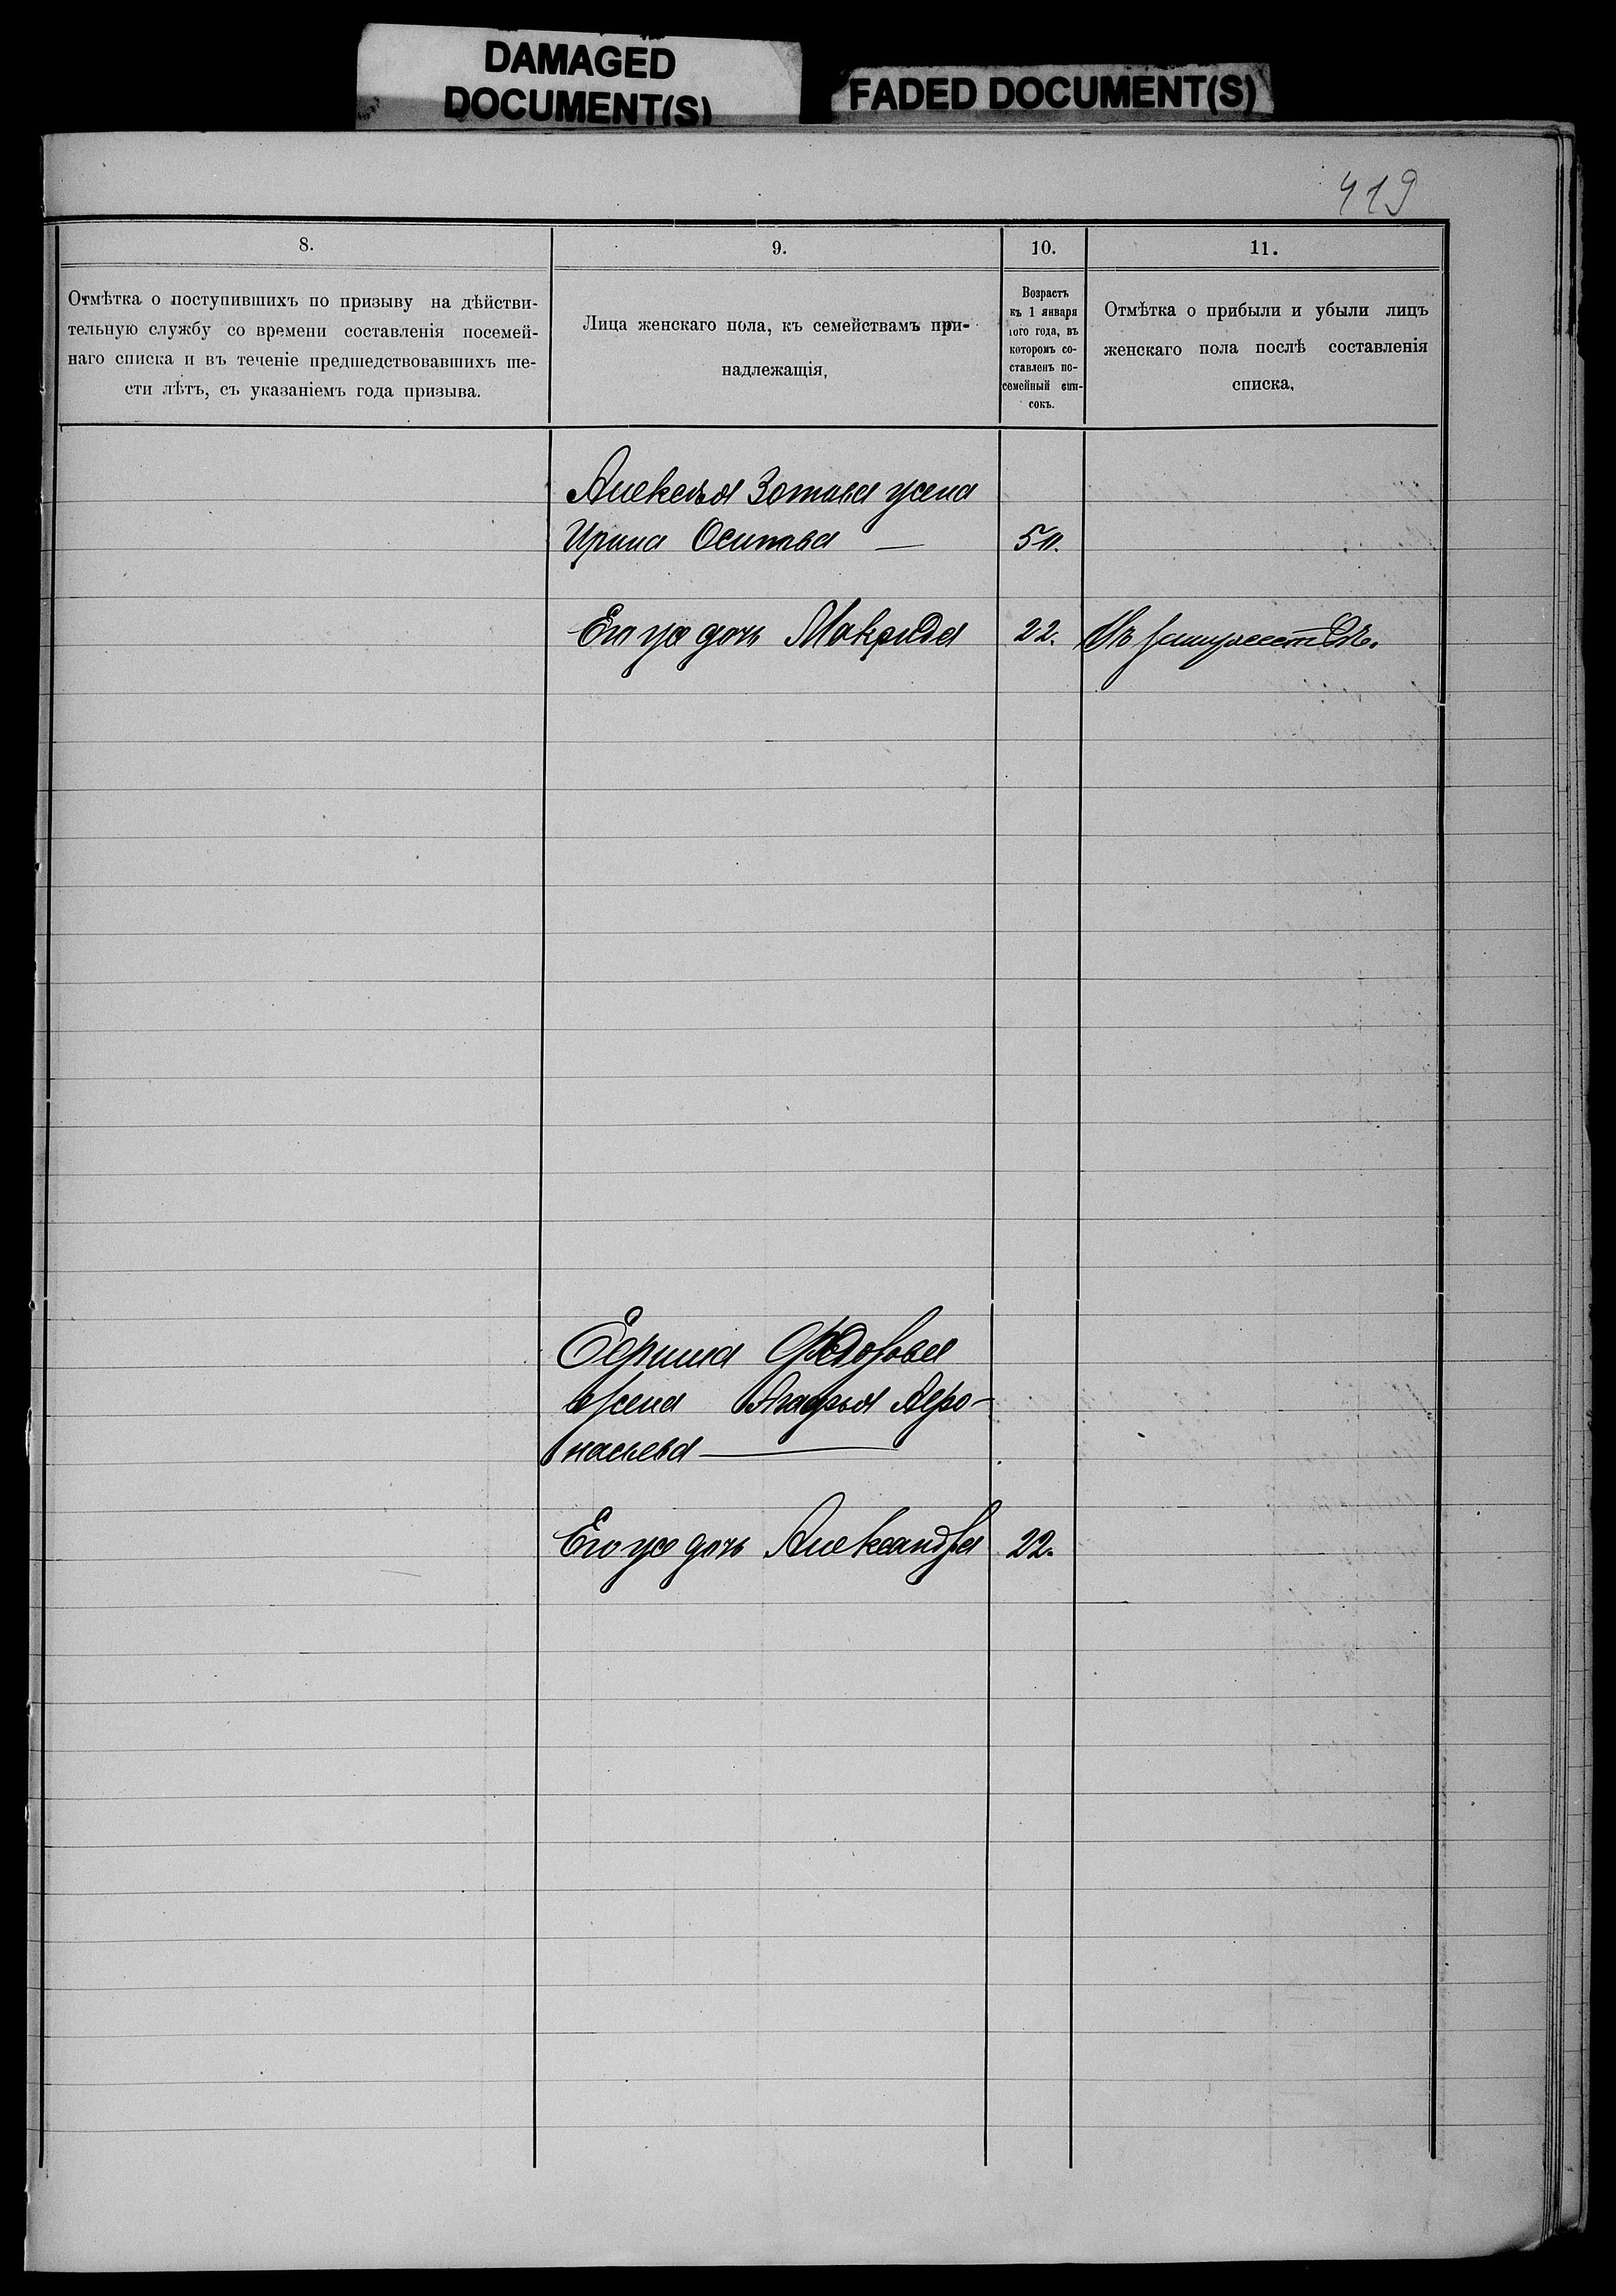 DAMAGED
DOCUMENT(S)
FADED DOCUMENT(S)
419
8.
Отмѣтка о поступившихъ по призыву на дѣйстви-
тельную службу со времени составленія посемей-
наго списка и въ теченіе предшедствовавшихъ ше-
сти лѣтъ, съ указаніемъ года призыва.
9.
Лица женскаго пола, къ семействамъ при-
надлежащія,
10.
Возрастъ
къ 1 января
того года, въ
которомъ со-
ставленъ по-
семейный спи-
сокъ.
11.
Отмѣтка о прибыли и убыли лицъ
женскаго пола послѣ составленія
списка,
Алексѣя Зотова жена
Ирина Осипова —
Его же дочь Макрида 22. Въ замужествѣ.
Федорова
жена Агафья Афо-
насьева —
Его же дочь Александра 22.